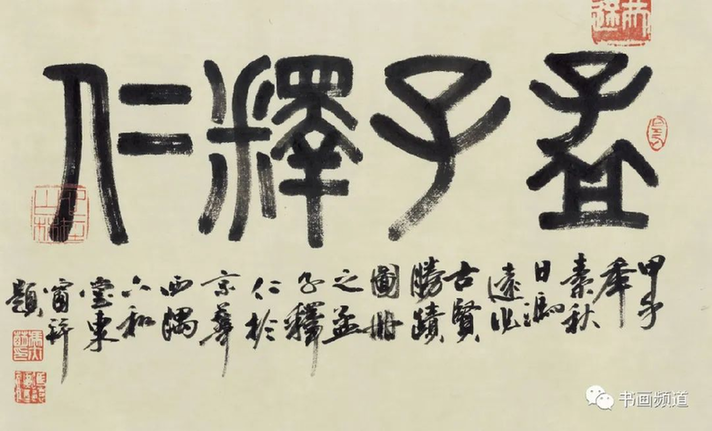 孟子釋仁
甲午
年
素秋
日馮
遠作
古賢
勝蹟
圖冊
之孟
子釋
仁於
京華
西隅
六和
堂東
窗并
題
书画频道